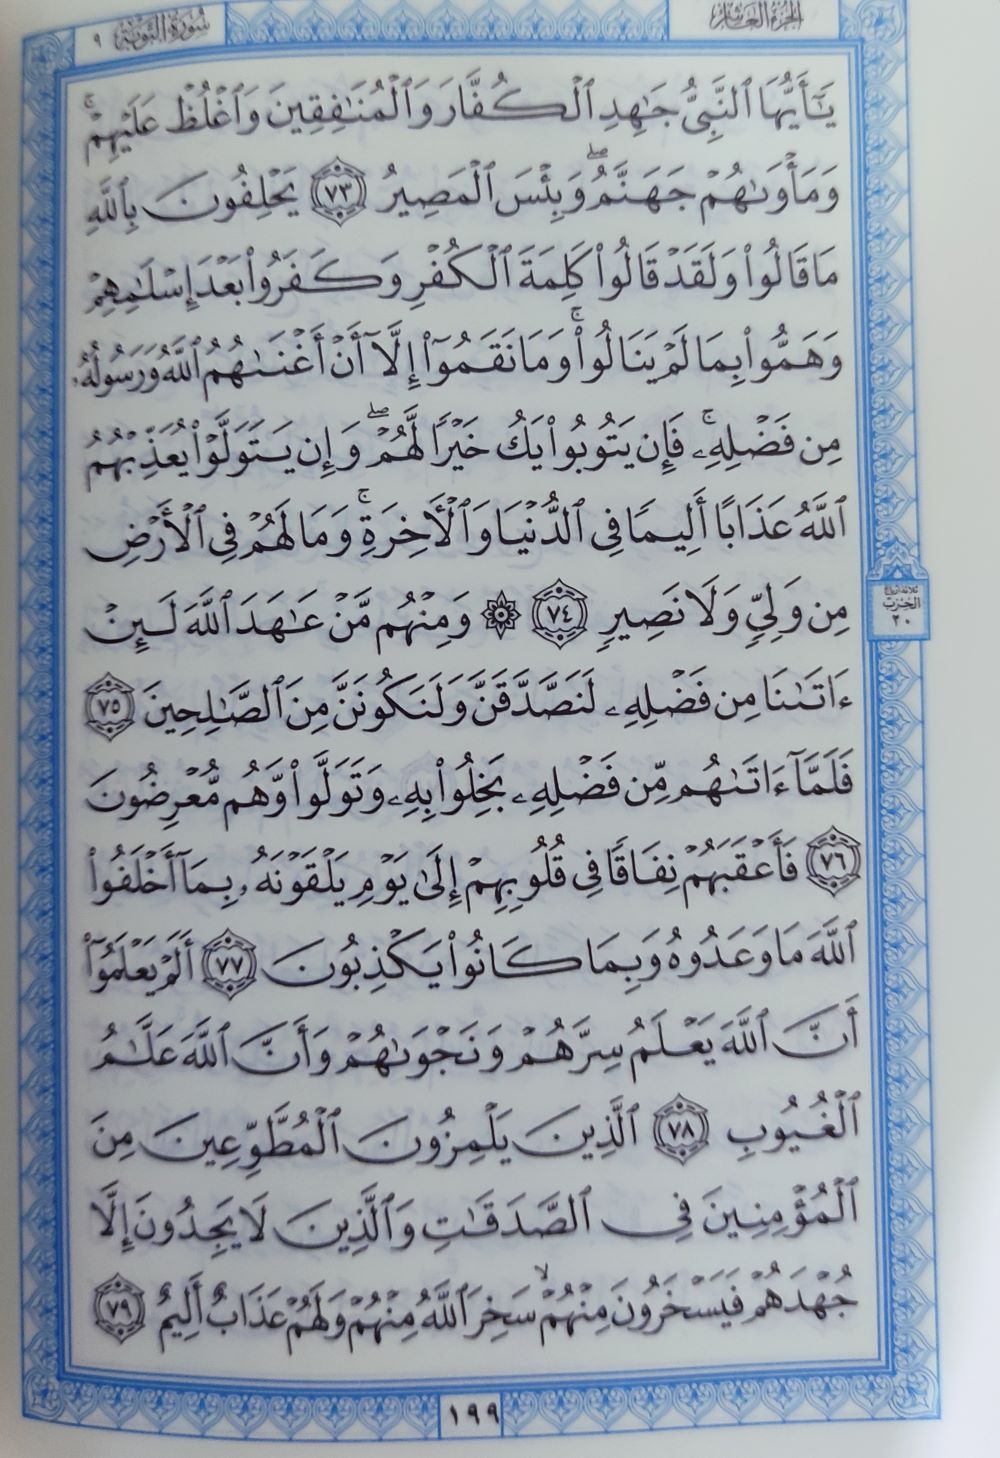 الجزء العاشر
سورة التوبة ٩
يَٰٓأَيُّهَا ٱلنَّبِيُّ جَٰهِدِ ٱلْكُفَّارَ وَٱلْمُنَٰفِقِينَ وَٱغْلُظْ عَلَيْهِمْۚ
وَمَأْوَىٰهُمْ جَهَنَّمُۖ وَبِئْسَ ٱلْمَصِيرُ ٧٣ يَحْلِفُونَ بِٱللَّهِ
مَا قَالُوا۟ وَلَقَدْ قَالُوا۟ كَلِمَةَ ٱلْكُفْرِ وَكَفَرُوا۟ بَعْدَ إِسْلَٰمِهِمْ
وَهَمُّوا۟ بِمَا لَمْ يَنَالُوا۟ۚ وَمَا نَقَمُوٓا۟ إِلَّآ أَنْ أَغْنَىٰهُمُ ٱللَّهُ وَرَسُولُهُۥ
مِن فَضْلِهِۦۚ فَإِن يَتُوبُوا۟ يَكُ خَيْرًا لَّهُمْۖ وَإِن يَتَوَلَّوْا۟ يُعَذِّبْهُمُ
ٱللَّهُ عَذَابًا أَلِيمًا فِى ٱلدُّنْيَا وَٱلْأَخِرَةِۚ وَمَا لَهُمْ فِى ٱلْأَرْضِ
مِن وَلِىٍّ وَلَا نَصِيرٍ ٧٤ ۞ وَمِنْهُم مَّنْ عَٰهَدَ ٱللَّهَ لَئِنْ
ثلاثة أرباع
الحزب
٢٠
ءَاتَىٰنَا مِن فَضْلِهِۦ لَنَصَّدَّقَنَّ وَلَنَكُونَنَّ مِنَ ٱلصَّٰلِحِينَ ٧٥
فَلَمَّآ ءَاتَىٰهُم مِّن فَضْلِهِۦ بَخِلُوا۟ بِهِۦ وَتَوَلَّوا۟ وَّهُم مُّعْرِضُونَ
٧٦ فَأَعْقَبَهُمْ نِفَاقًا فِى قُلُوبِهِمْ إِلَىٰ يَوْمِ يَلْقَوْنَهُۥ بِمَآ أَخْلَفُوا۟
ٱللَّهَ مَا وَعَدُوهُ وَبِمَا كَانُوا۟ يَكْذِبُونَ ٧٧ أَلَمْ يَعْلَمُوٓا۟
أَنَّ ٱللَّهَ يَعْلَمُ سِرَّهُمْ وَنَجْوَىٰهُمْ وَأَنَّ ٱللَّهَ عَلَّٰمُ
ٱلْغُيُوبِ ٧٨ ٱلَّذِينَ يَلْمِزُونَ ٱلْمُطَّوِّعِينَ مِنَ
ٱلْمُؤْمِنِينَ فِى ٱلصَّدَقَٰتِ وَٱلَّذِينَ لَا يَجِدُونَ إِلَّا
جُهْدَهُمْ فَيَسْخَرُونَ مِنْهُمْۙ سَخِرَ ٱللَّهُ مِنْهُمْ وَلَهُمْ عَذَابٌ أَلِيمٌ ٧٩
١٩٩